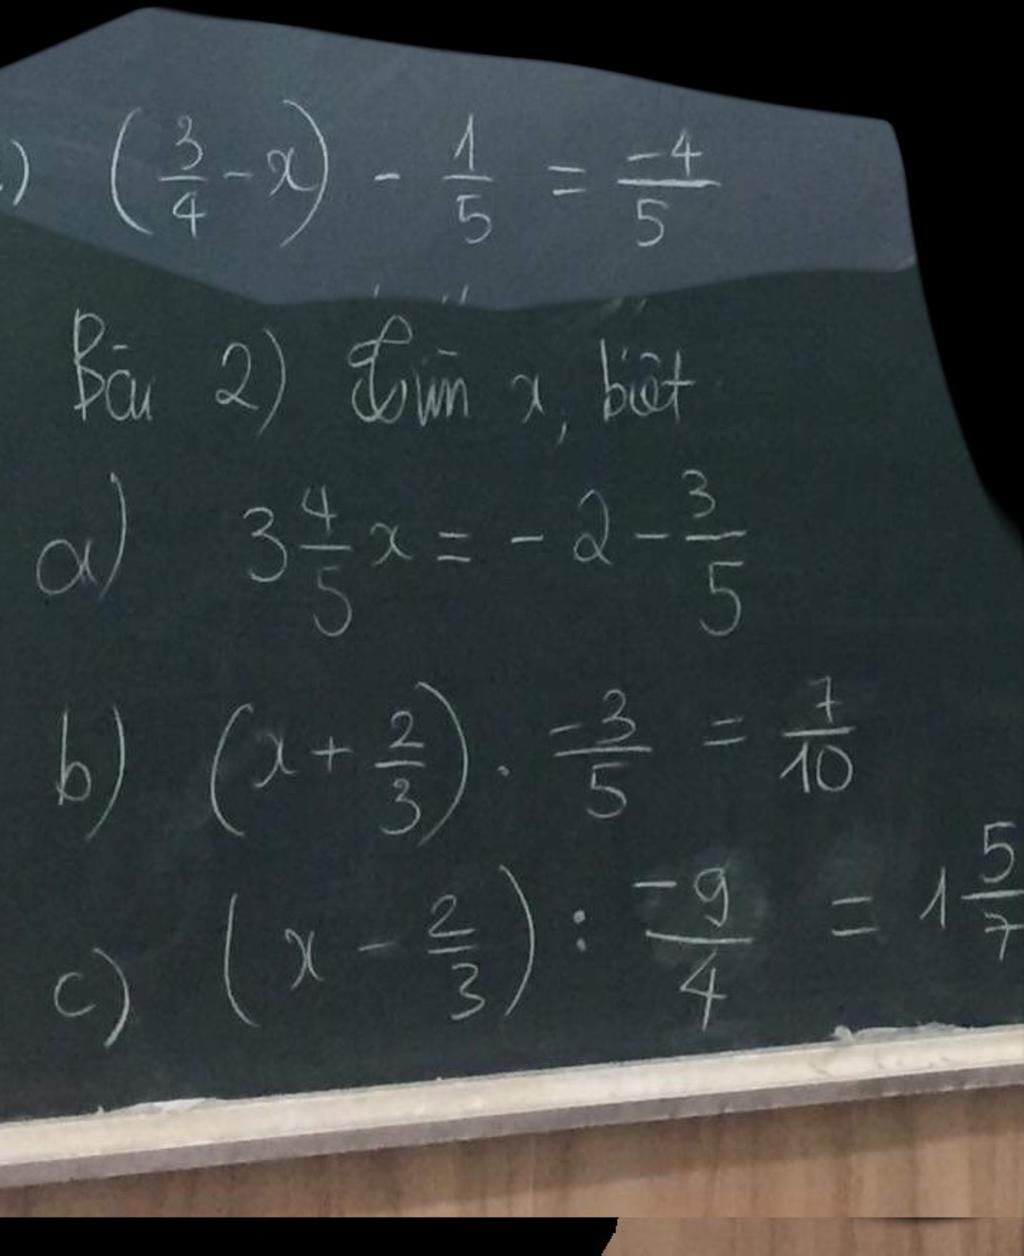 ) (3/4 - x) - 1/5 = -4/5
Bài 2) Tìm x, biết
a) 3 4/5 x = - 2 - 3/5
b) (x + 2/3) . -3/5 = 7/10
c) (x - 2/3) : -9/4 = 1 5/7